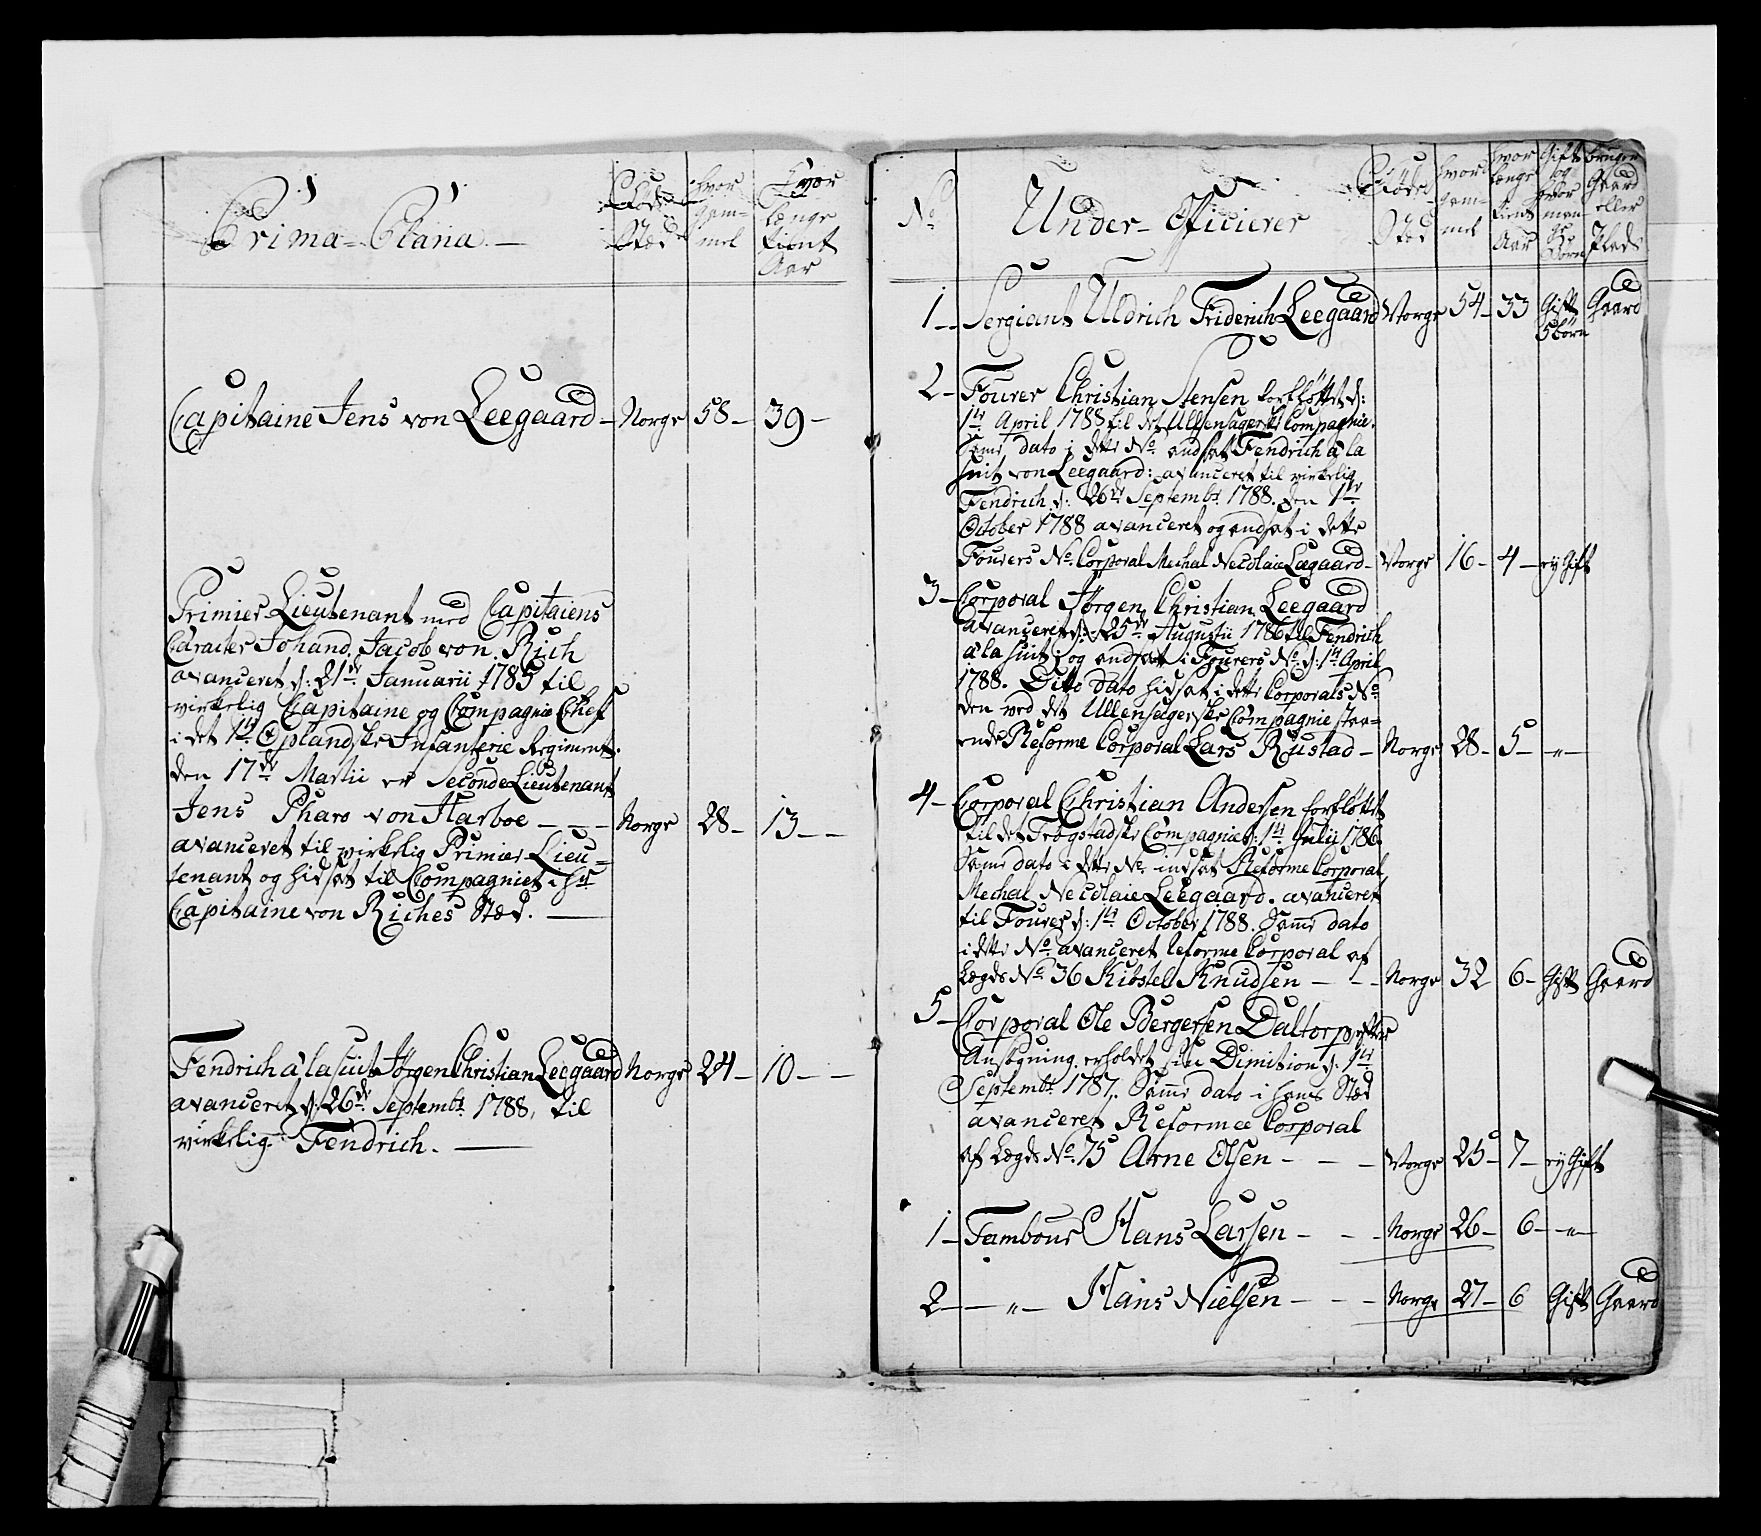 Prima-Plana. —
Føde Stæd
hvor gam-mel
hvor længe tient Aar
Capitaine Jens von Leegaard – Norge 58 – 39 –
Primier Lieutenant med Capitaiens
Caracter Johand Jacob von Rich
avanceret d: 21de Januarii 1785 til
virkelig Capitaine og Compagnie Chef
i det 1te Oplandske Infanterie Regiment.
den 17de Martii er Seconde Lieutenant
Jens Pharo von Harboe – – – Norge 28 – 13 – –
avanceret til virkelig Primier Lieu-
tenant og hidsat til Compagniet i Hr
Capitaine von Riches Stæd. —
Fendrich à la suit Jörgen Christian Leegaard Norge 24 – 10 – –
avanceret d: 26de Septembr 1788, til
virkelig Fendrich. —
No
Under-Officierer
Føde Stæd
hvor gam-mel
hvor længe tient Aar
Gift og hvor man-ge Børn
bruger Gaard eller Plads
1 – Sergiant Uldrich Friderich Leegaard Norge 54 – 33 Gift 5 børn Gaard
2 – Fourer Christian Stensen forfløttet d:
1te April 1788 til det Ullensagerske Compagnie.
Samme dato i dette No andsat Fendrich à la
suit von Leegaard: avanceret til virkelig
Fendrich d: 26de Septembr 1788. den 1te
October 1788 avanceret og andsat i dette
Fourers No Corporal Mechal Necolaie Leegaard – Norge 16 – 4 – ey Gift
3 – Corporal Jörgen Christian Leegaard
avanceret d: 25de Augustii 1786 til Fendrich
à la suit; og andsat i Fourers No d: 1te April
1788. Ditto dato hidsat i dette Corporals No
den ved det Ullensagerske Compagnie staa-
ende Reforme Corporal Lars Rustad – Norge 28 – 5 – „ –
4 – Corporal Christian Andersen forfløttet
til det Trøgstadske Compagnie d: 1te Julii 1786.
Samme dato i dette No indsat Reforme Corporal
Mechal Necolaie Leegaard. avanceret
til Fourer d: 1te October 1788. Samme dato
i dette No avanceret Reforme Corporal af
Lægds No 36 Kibstel Knudsen – – – Norge 32 6 – Gift Gaard
5 – Corporal Ole Bergersen Daltorp efter
Ansøgning erholdet sin Dimition d. 1te
Septembr 1787. Samme dato i hans Stæd
avanceret Reformee Corporal
af Lægds No. 75 Arne Olsen – – – Norge 25 – 7 – ey Gift
1 – Tambour Hans Larsen – – – Norge 26 – 6 – „ –
2 – – „ – Hans Nielsen – – – Norge 27 – 6 Gift Gaard